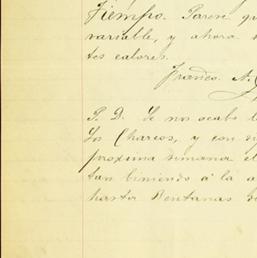 Tiempo. Parese qu
variable, y ahora
tes calores.
Franco. A.
P. D. Se nos acabo
Los Charcos, y con
proxima semana el
tan biniendo á la a
hasta Bentanas